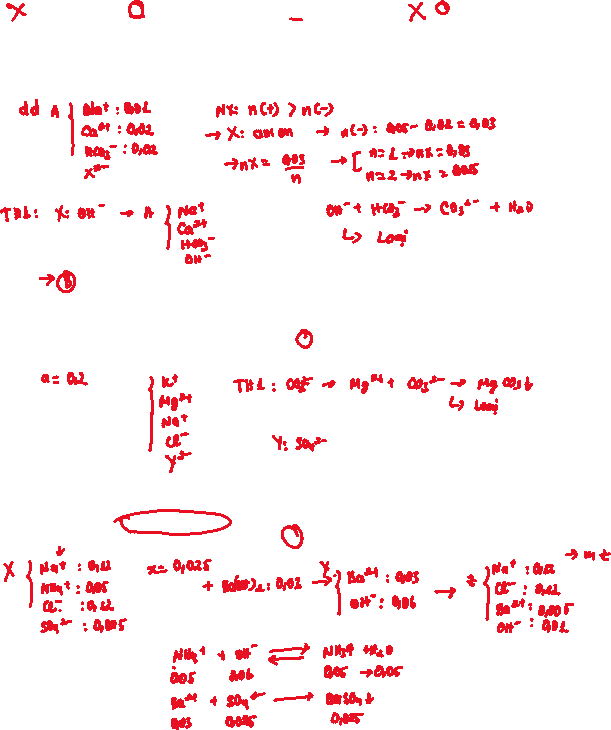 X a – X
dd A { Na⁺ : 0,01
Ca²⁺ : 0,02
HCO₃⁻ : 0,02
Xⁿ⁻
NX: n(+) > n(-)
→ X: anion → n(-) : 0,05 - 0,02 = 0,03
→ nX = 0,03/n → [ n=1 → nX = 0,03
n=2 → nX = 0,015
TH1: X: OH⁻ → A { Na⁺
Ca²⁺
HCO₃⁻
OH⁻
OH⁻ + HCO₃⁻ → CO₃²⁻ + H₂O
↳ Loại
→
a = 0,2
{ K⁺
Mg²⁺
Na⁺
Cl⁻
Y²⁻
TH1: CO₃²⁻ → Mg²⁺ + CO₃²⁻ → MgCO₃↓
↳ Loại
Y: SO₄²⁻
X { Na⁺ : 0,12
NH₄⁺ : 0,05
Cl⁻ : 0,12
SO₄²⁻ : 0,025
x = 0,025
+ Ba(OH)₂ : 0,03 → Y { Ba²⁺ : 0,03
OH⁻ : 0,06
→ { Na⁺ : 0,12
Cl⁻ : 0,12
Ba²⁺ : 0,005
OH⁻ : 0,01
→ m
NH₄⁺ + OH⁻ ⇌ NH₃↑ + H₂O
0,05 0,06 0,05 → 0,05
Ba²⁺ + SO₄²⁻ → BaSO₄↓
0,03 0,025 0,025